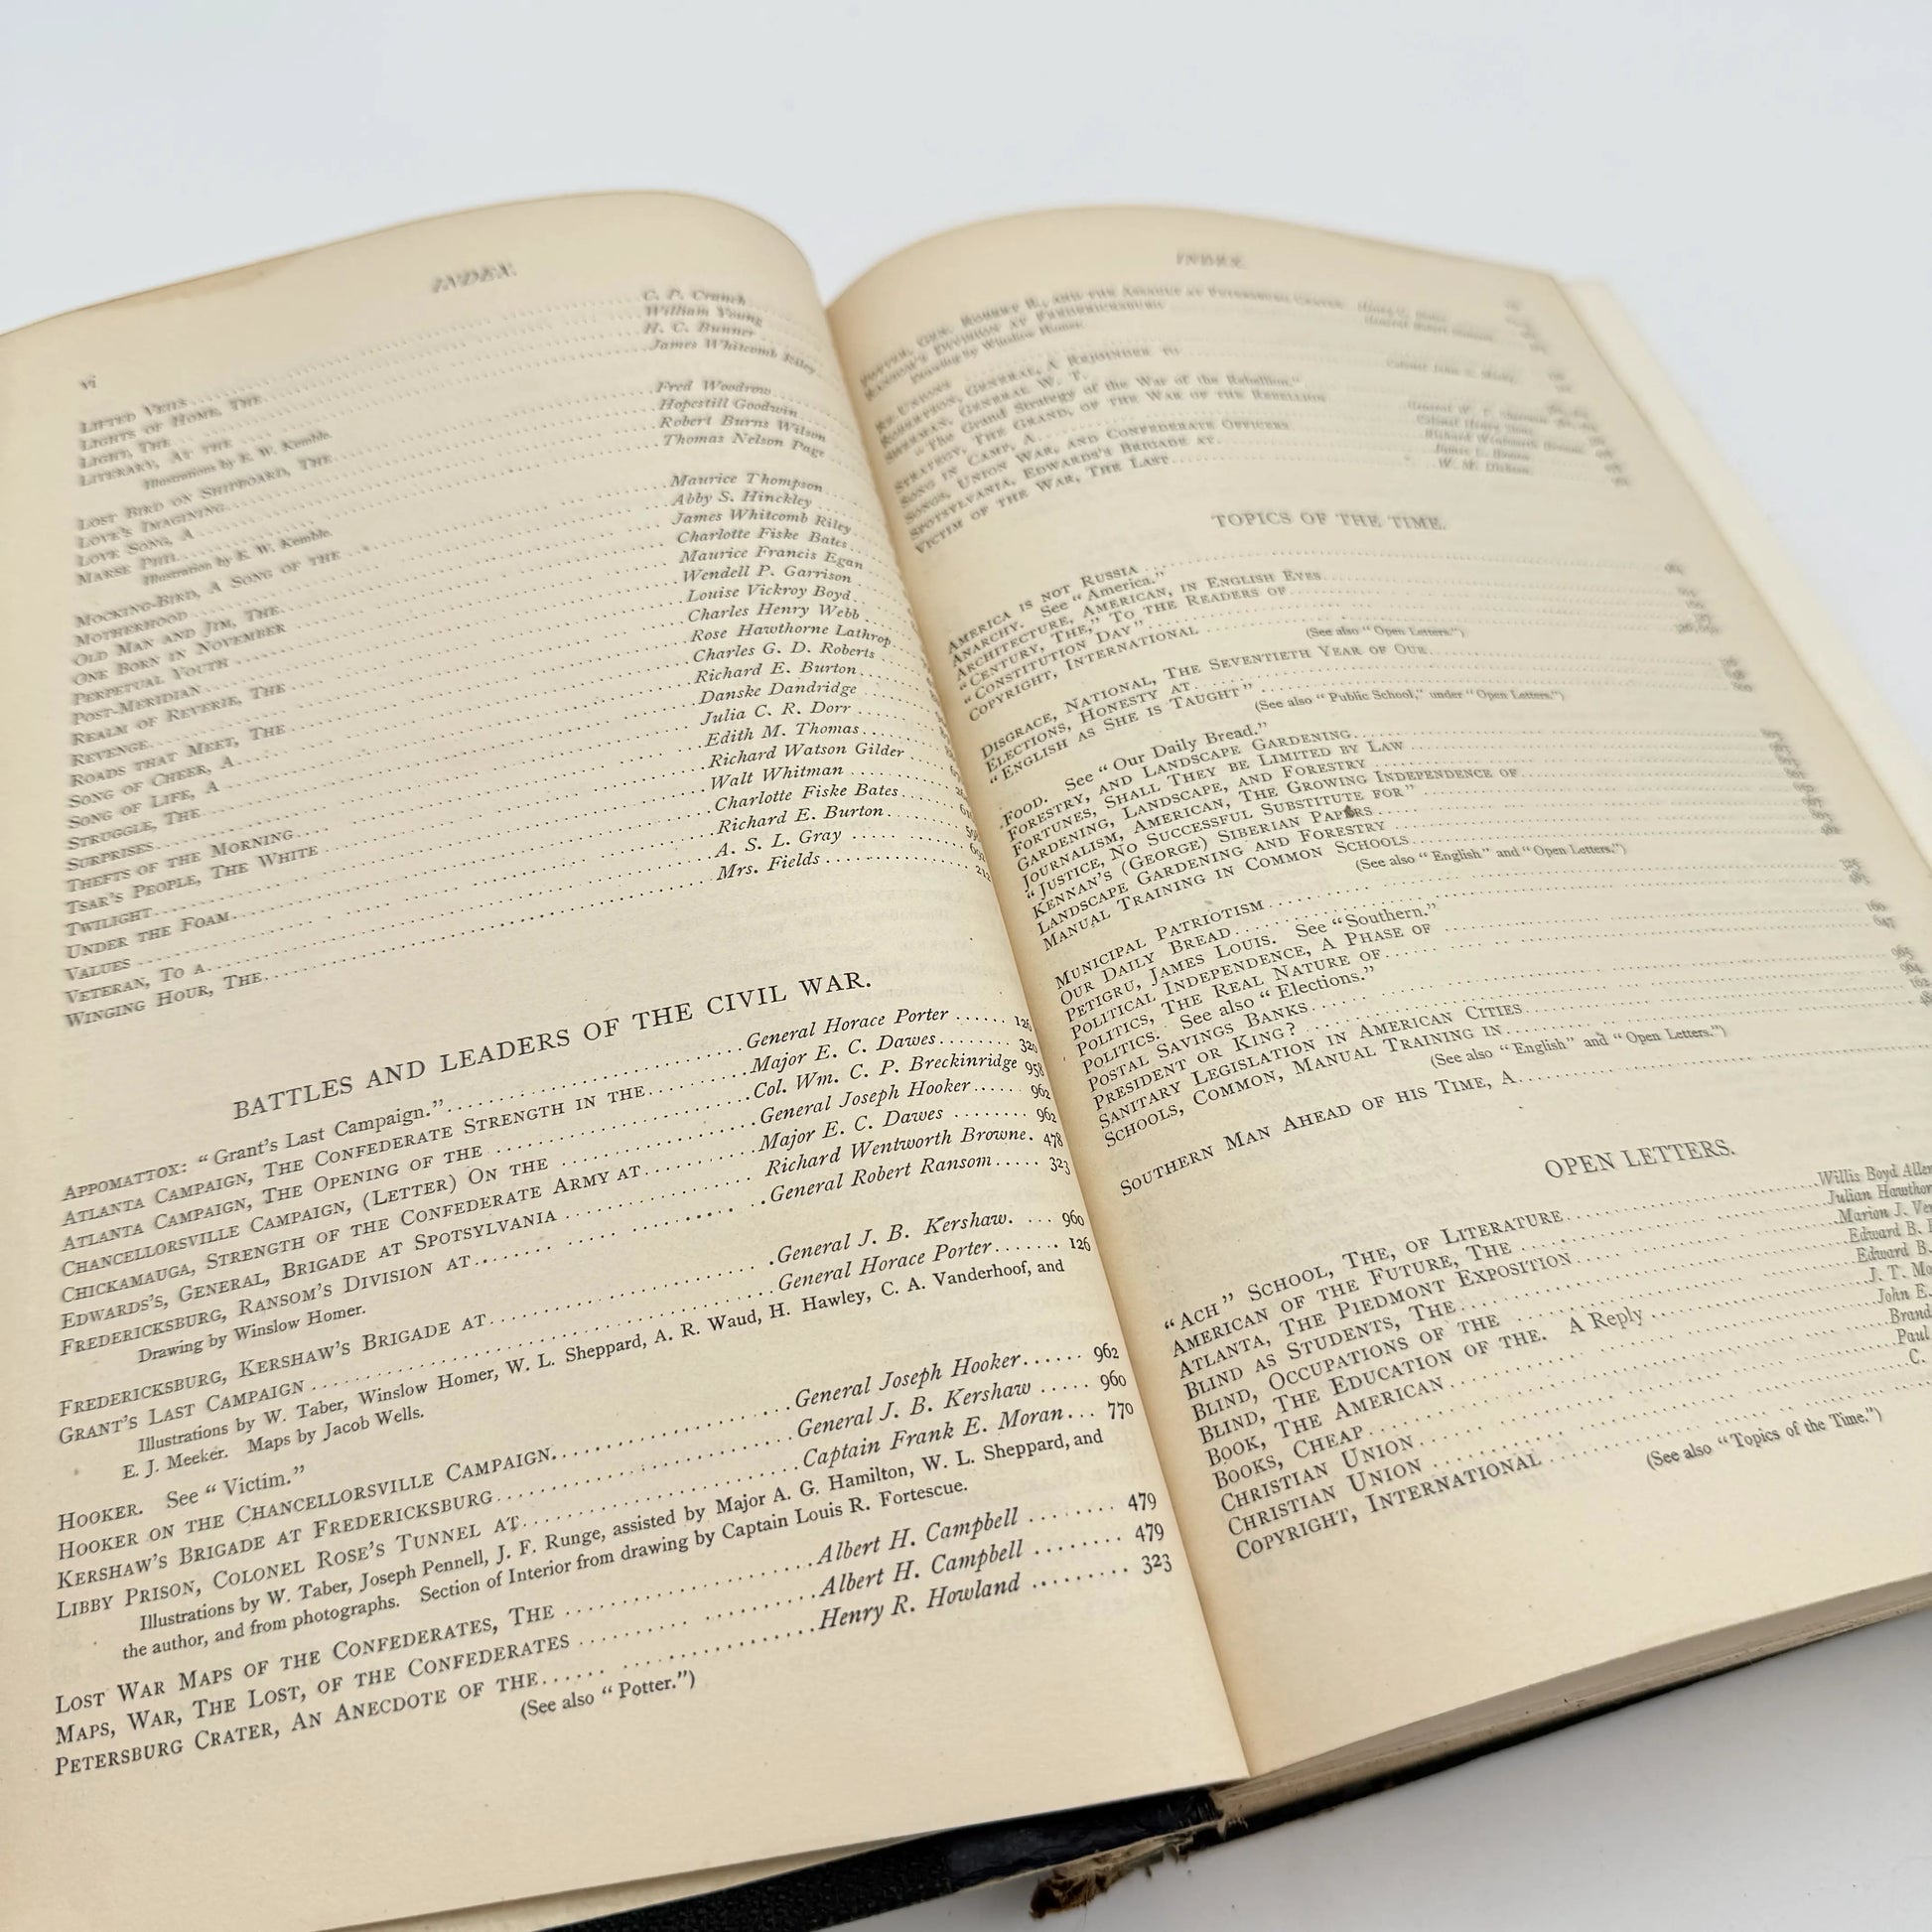 vi
INDEX
LIFTED VEILS C. P. Cranch
LIGHTS OF HOME, THE William Young
LIGHT, THE H. C. Bunner
LITERARY, AT THE James Whitcomb Riley
Illustrations by E. W. Kemble.
LOST BIRD ON SHIPBOARD, THE Fred Woodrow
LOVE'S IMAGINING Hopestill Goodwin
LOVE SONG, A Robert Burns Wilson
MARSE PHIL Thomas Nelson Page
Illustration by E. W. Kemble.
MOCKING-BIRD, A SONG OF THE Maurice Thompson
MOTHERHOOD Abby S. Hinckley
OLD MAN AND JIM, THE James Whitcomb Riley
ONE BORN IN NOVEMBER Charlotte Fiske Bates
PERPETUAL YOUTH Maurice Francis Egan
POST-MERIDIAN Wendell P. Garrison
REALM OF REVERIE, THE Louise Vickroy Boyd
REVENGE Charles Henry Webb
ROADS THAT MEET, THE Rose Hawthorne Lathrop
SONG OF CHEER, A Charles G. D. Roberts
SONG OF LIFE, A Richard E. Burton
STRUGGLE, THE Danske Dandridge
SURPRISES Julia C. R. Dorr
THEFTS OF THE MORNING Edith M. Thomas
TSAR'S PEOPLE, THE WHITE Richard Watson Gilder
TWILIGHT Walt Whitman
UNDER THE FOAM Charlotte Fiske Bates
VALUES Richard E. Burton
VETERAN, TO A A. S. L. Gray
WINGING HOUR, THE Mrs. Fields 212
BATTLES AND LEADERS OF THE CIVIL WAR.
APPOMATTOX: "Grant's Last Campaign." General Horace Porter 126
ATLANTA CAMPAIGN, THE CONFEDERATE STRENGTH IN THE Major E. C. Dawes 320
ATLANTA CAMPAIGN, THE OPENING OF THE Col. Wm. C. P. Breckinridge 958
CHANCELLORSVILLE CAMPAIGN, (LETTER) ON THE General Joseph Hooker 962
CHICKAMAUGA, STRENGTH OF THE CONFEDERATE ARMY AT Major E. C. Dawes 962
EDWARDS'S, GENERAL, BRIGADE AT SPOTSYLVANIA Richard Wentworth Browne. 478
FREDERICKSBURG, RANSOM'S DIVISION AT General Robert Ransom 323
Drawing by Winslow Homer.
FREDERICKSBURG, KERSHAW'S BRIGADE AT General J. B. Kershaw. 960
GRANT'S LAST CAMPAIGN General Horace Porter 126
Illustrations by W. Taber, Winslow Homer, W. L. Sheppard, A. R. Waud, H. Hawley, C. A. Vanderhoof, and
E. J. Meeker. Maps by Jacob Wells.
HOOKER. See "Victim."
HOOKER ON THE CHANCELLORSVILLE CAMPAIGN. General Joseph Hooker 962
KERSHAW'S BRIGADE AT FREDERICKSBURG General J. B. Kershaw 960
LIBBY PRISON, COLONEL ROSE'S TUNNEL AT Captain Frank E. Moran 770
Illustrations by W. Taber, Joseph Pennell, J. F. Runge, assisted by Major A. G. Hamilton, W. L. Sheppard, and
the author, and from photographs. Section of Interior from drawing by Captain Louis R. Fortescue.
LOST WAR MAPS OF THE CONFEDERATES, THE Albert H. Campbell 479
MAPS, WAR, THE LOST, OF THE CONFEDERATES Albert H. Campbell 479
PETERSBURG CRATER, AN ANECDOTE OF THE Henry R. Howland 323
(See also "Potter.")
INDEX.
POTTER, GEN. ROBERT B., AND THE ASSAULT AT PETERSBURG CRATER
RANSOM'S DIVISION AT FREDERICKSBURG General Robert Ransom
Drawing by Winslow Homer.
RE-UNIONS
ROBERTSON, GENERAL, A REJOINDER TO
SHERMAN, GENERAL W. T.
"The Grand Strategy of the War of the Rebellion."
STRATEGY, THE GRAND, OF THE WAR OF THE REBELLION General W. T. Sherman
SONG IN CAMP, A
SONGS, UNION WAR, AND CONFEDERATE OFFICERS
SPOTSYLVANIA, EDWARDS'S BRIGADE AT Richard Wentworth Browne
VICTIM OF THE WAR, THE LAST
TOPICS OF THE TIME.
AMERICA IS NOT RUSSIA
ANARCHY. See "America."
ARCHITECTURE, AMERICAN, IN ENGLISH EYES
"CENTURY, THE," TO THE READERS OF
"CONSTITUTION DAY"
COPYRIGHT, INTERNATIONAL
(See also "Open Letters.")
DISGRACE, NATIONAL, THE SEVENTIETH YEAR OF OUR
ELECTIONS, HONESTY AT
"ENGLISH AS SHE IS TAUGHT"
(See also "Public School," under "Open Letters.")
FOOD. See "Our Daily Bread."
FORESTRY, AND LANDSCAPE GARDENING
FORTUNES, SHALL THEY BE LIMITED BY LAW
GARDENING, LANDSCAPE, AND FORESTRY
JOURNALISM, AMERICAN, THE GROWING INDEPENDENCE OF
"JUSTICE, NO SUCCESSFUL SUBSTITUTE FOR"
KENNAN'S (GEORGE) SIBERIAN PAPERS
LANDSCAPE GARDENING AND FORESTRY
MANUAL TRAINING IN COMMON SCHOOLS
(See also "English" and "Open Letters.")
MUNICIPAL PATRIOTISM
OUR DAILY BREAD
PETIGRU, JAMES LOUIS. See "Southern."
POLITICAL INDEPENDENCE, A PHASE OF
POLITICS, THE REAL NATURE OF
POLITICS. See also "Elections."
POSTAL SAVINGS BANKS
PRESIDENT OR KING?
SANITARY LEGISLATION IN AMERICAN CITIES
SCHOOLS, COMMON, MANUAL TRAINING IN
(See also "English" and "Open Letters.")
SOUTHERN MAN AHEAD OF HIS TIME, A
OPEN LETTERS.
"ACH" SCHOOL, THE, OF LITERATURE Willis Boyd Allen
AMERICAN OF THE FUTURE, THE Julian Hawthor
ATLANTA, THE PIEDMONT EXPOSITION Marion J. Ver
BLIND AS STUDENTS, THE Edward B.
BLIND, OCCUPATIONS OF THE Edward B.
BLIND, THE EDUCATION OF THE. A Reply J. T. Mo
BOOK, THE AMERICAN John E.
BOOKS, CHEAP Brand
CHRISTIAN UNION Paul
CHRISTIAN UNION C.
COPYRIGHT, INTERNATIONAL
(See also "Topics of the Time.")